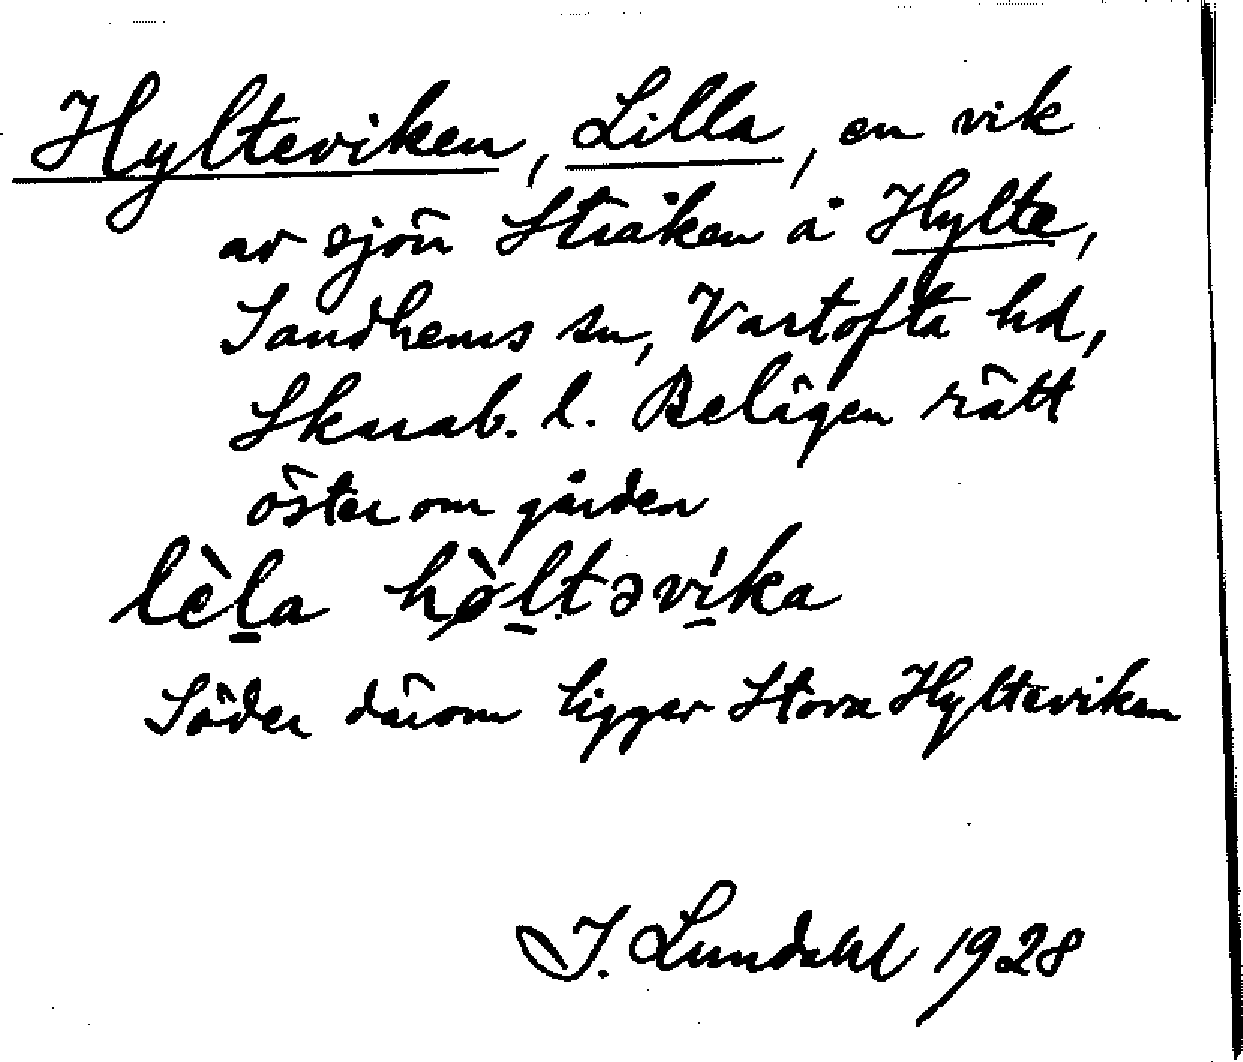 Hylteviken, Lilla, en vik
av sjön Stråken å Hylte,
Sandhems sn, Vartofta hd,
Skarab. l. Belägen rätt
öster om gården
lèla hø̀ltəvíka
Söder därom ligger Stora Hylteviken
I. Lundahl 1928